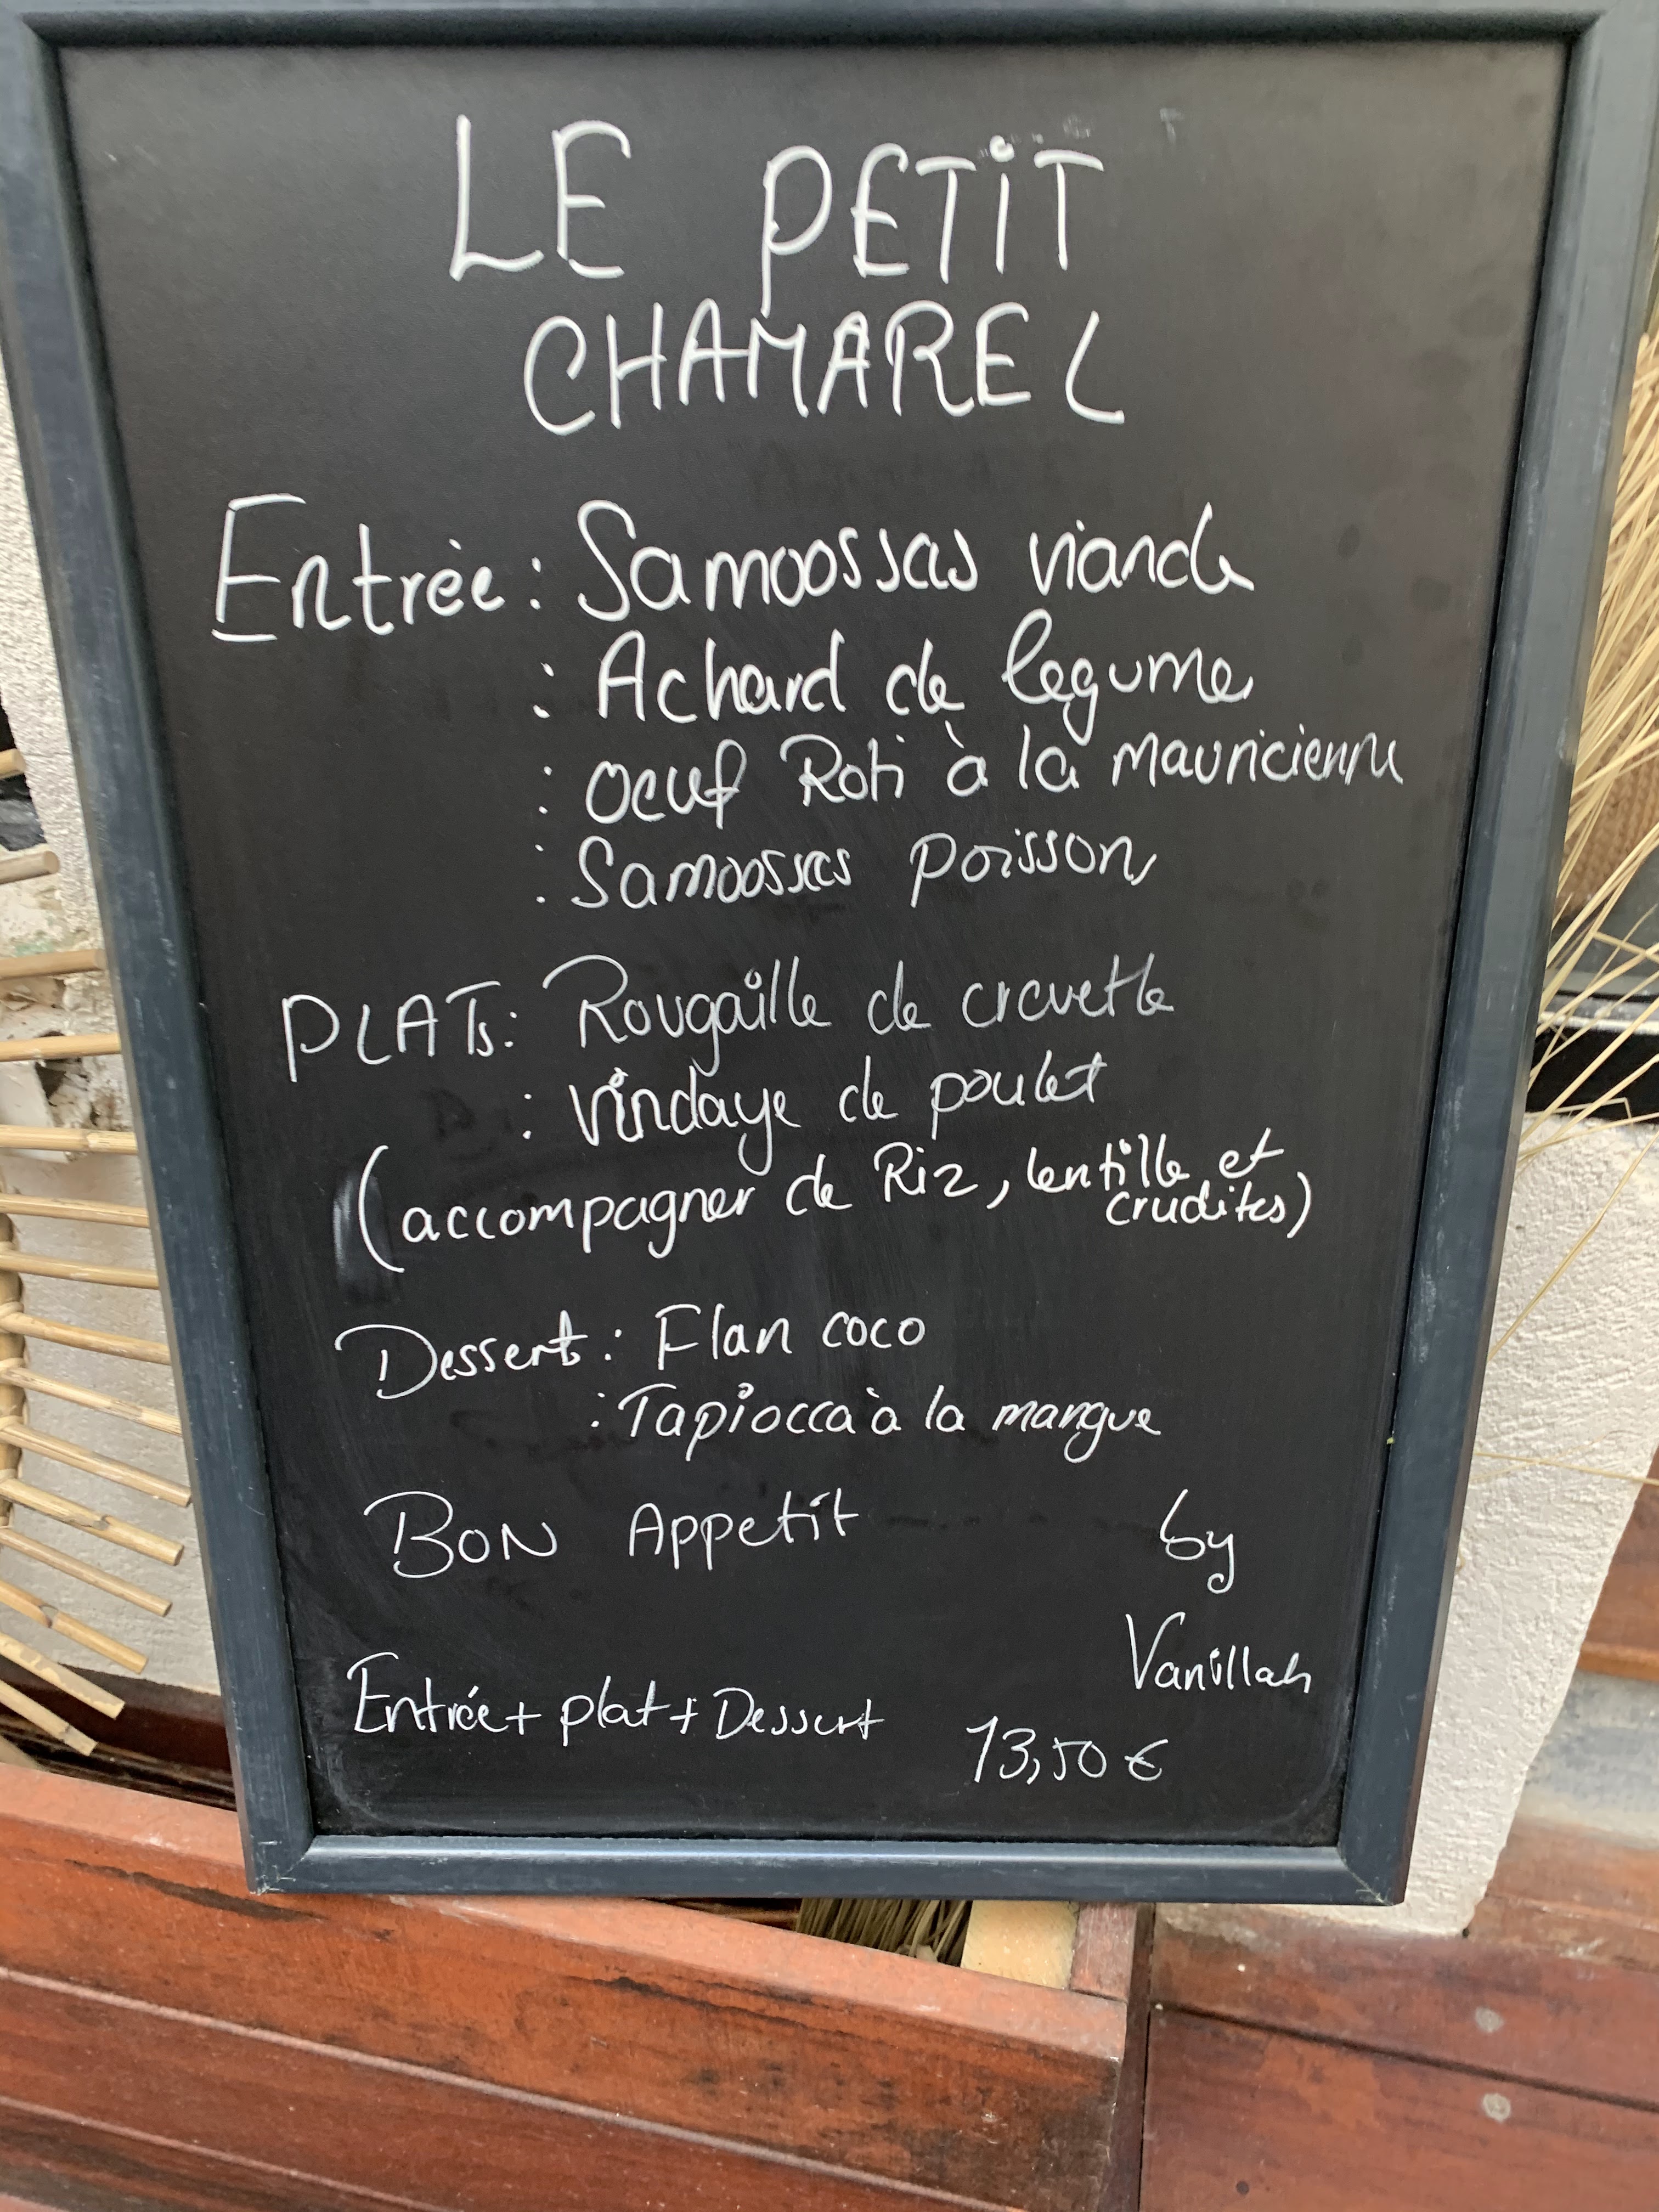 LE PETiT
CHAMAREL
Entrèe : Samoossas viande
: Achard de legume
: oeuf Roti à la mauricienne
: Samoossas poisson
PLATs : Rougaille de crevette
: vindaye de poulet
(accompagner de Riz, lentille et
crudites)
Dessert : Flan coco
: Tapiocca à la mangue
BON Appetit by
Vanillah
Entrée + plat + Dessert 13,50 €